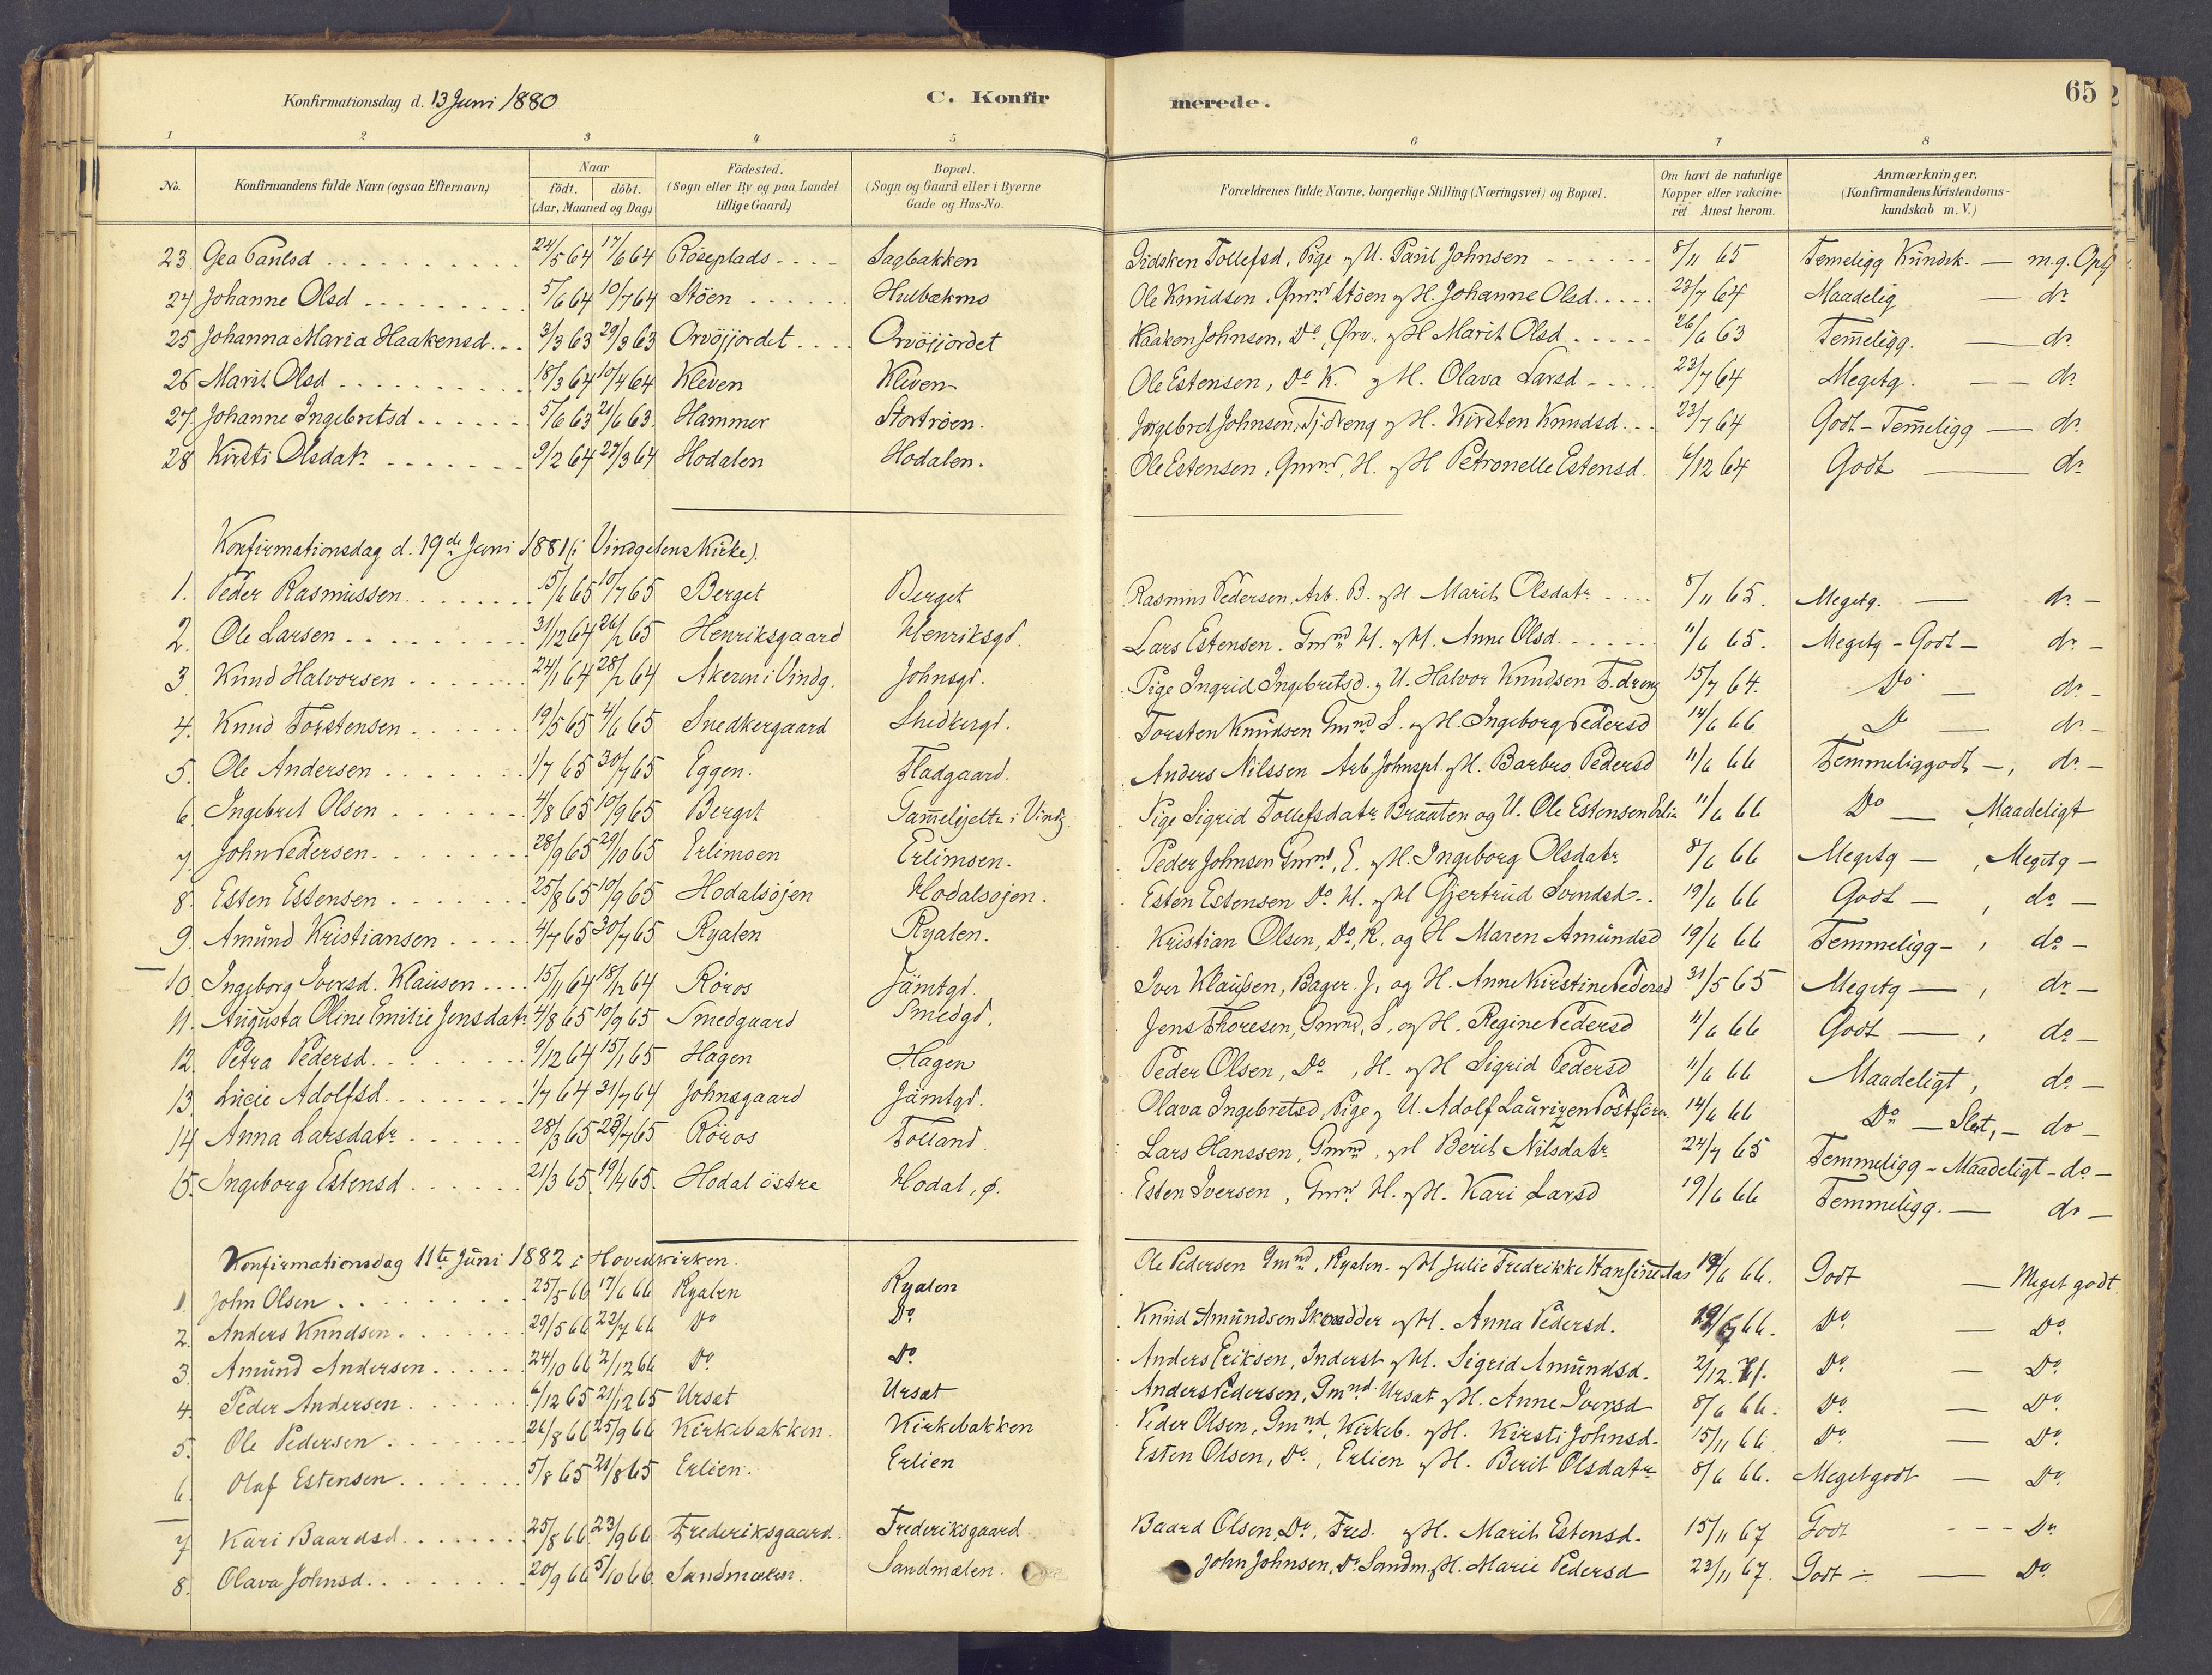 65
Konfirmationsdag d. 13 Juni 1880 C. Konfirmerede.
1 2 3 4 5 6 7 8
No. Konfirmandens fulde Navn (ogsaa Efternavn) Naar Födt. döbt. (Aar, Maaned og Dag) Födested. (Sogn eller By og paa Landet tillige Gaard) Bopæl. (Sogn og Gaard eller i Byerne Gade og Hus-No. Forældrenes fulde Navne, borgerlige Stilling (Næringsvei) og Bopæl. Om havt de naturlige Kopper eller vakcineret. Attest herom. Anmærkninger. (Konfirmandens Kristendomskundskab m. V.)
23. Gea Paulsd 24/5 64 17/6 64 Röseplads Sagbakken Tollefsd, Pige & U. Paul Johnsen 8/11 65 Temeligg Kundsk. — m.g.
24 Johanne Olsd 5/6 64 10/7 64 Stöen Hulbækmo Ole Knudsen, Gmnd Stöen & H. Johanne Olsd. 23/7 64 Maadelig — do
25 Johanna Maria Haakensd. 3/3 63 29/3 63 Orvöjjordet Orvöjjordet Haakon Johnsen, Do, Örv., & H Marit Olsd 26/6 63 Temeligg. — do
26 Marit Olsd 18/3 64 10/4 64 Kleven Kleven Ole Estensen, Do K. & H. Olava Larsd 23/7 64 Megetg. — do
27. Johanne Ingebretsd 5/6 63 21/6 63. Hammer Stortröen. Ingebret Johnsen, Tj.dreng & H. Kirsten Knudsd. 23/7 64 Godt - Temeligg — do
28 Kirsti Olsdatr 9/2 64 27/3 64 Hodalen Hodalen. Ole Estensen, Gmnd, H. & H Petronelle Estensd. 6/12 64 Godt — do
Konfirmationsdag d. 19de Juni 1881 (i Vindgelens Kirke).
1. Peder Rasmussen 15/6 65 10/7 65 Berget Berget Rasmus Pedersen, Arb. B. & H Marit Olsdatr 8/11 65. Megetg. — do —
2. Ole Larsen 31/12 64 26/2 65 Henriksgaard Henriksgd. Lars Estensen. Gmnd H. & H. Anne Olsd. 11/6 65. Megetg - Godt — do —
3. Knud Halvorsen 24/1 64 28/2 64 Akeren i Vindg. Johnsgd. Pige Ingrid Ingebretsd. & U. Halvor Knudsen T.dreng 15/7 64. Do — do —
4. Knud Torstensen 19/5 65 4/6 65 Snedkergaard Snedkergd. Torsten Knudsen Gmnd S. & H. Ingeborg Pedersd 14/6 66 Do — do —
5. Ole Andersen 1/7 65 30/7 65 Eggen. Fladgaard. Anders Nilssen Arb Johnspl. & H. Barbro Pedersd 11/6 66 Temmeliggodt —, do —
6. Ingebret Olsen 4/8 65 10/9 65 Berget i Vindg. Pige Sigrid Tollefsdatr Braaten og U. Ole Estensen Erlie 11/6 66 Do — Maadeligt
7. John Pedersen. 28/9 65 29/10 65 Erlimoen Erlimoen. Peder Johnsen Gmnd, E. & H. Ingeborg Olsdatr 8/6 66 Megetg —, Megetg —
8. Esten Estensen 25/8 65 10/9 65 Hodalsöjen Hodalsöjen. Esten Estensen Do H. & H Gjertrud Svendsd. 19/6 66 Godt —, do —
9. Amund Kristiansen 4/7 65 30/7 65 Ryalen Ryalen. Kristian Olsen, Do, R. og H Maren Amundsd 19/6 66 Temmeligg —, do —
10. Ingeborg Iversd. Klausen 15/11 64 18/12 64 Röros Jämtgd. Iver Klausen, Bager. J, og H. Anne Kirstine Pedersd 31/5 65 Megetg —, do —
11. Augusta Oline Emilie Jensdatr 4/8 65 10/9 65 Smedgaard Smedgd. Jens Thoresen, Gmnd, S. og H. Regine Pedersd 11/6 66 Godt —, do —
12. Petra Pedersd. 9/12 64 15/1 65 Hagen Hagen Peder Olsen, Do, H. & H Sigrid Pedersd 11/6 66 Maadeligt, do —
13. Lucie Adolfsd. 1/7 64 31/7 64 Johnsgaard Jämtgd. Olava Ingebretsd, Pige & U. Adolf Laurizen 14/6 66 Do — Slet, — do —
14. Anna Larsdatr 28/3 65 23/7 65 Röros Tolland. Lars Hanssen, Gmnd. & H Berit Nilsdatr 24/7 65 Temmeligg - Maadeligt - do —
15. Ingeborg Estensd 21/3 65 19/4 65. Hodal östre Hodal, ö. Esten Iversen, Gmnd H. & H. Kari Larsd 19/6 66 Temmeligg. — do —
Konfirmationsdag 11te Juni 1882 i Hovedkirken.
1. John Olsen 25/5 66 17/6 66 Ryalen Ryalen Ole Pedersen Gmnd, Ryalen. & H Julie Fredrikke 66. Godt — Meget godt
2. Anders Knudsen 29/5 66 22/7 66 Do Do. Knud Amundsen Skrædder & H. Anna Pedersd. 66. Do. — Do.
3. Amund Andersen 24/10 66 2/12 66 Do. Do. Anders Eriksen, Inderst & H. Sigrid Amundsd. 2/12 Do. — Do.
4. Peder Andersen 6/12 65 21/12 65 Ursæt Ursæt Anders Pedersen, Gmnd. Ursæt & H. Anne Iversd 8/6 66. Do. — Do.
5. Ole Pedersen 26/8 66 25/9 66 Kirkebakken. Kirkebakken Peder Olsen, Gmnd, Kirkeb. & H. Kirsti Johnsd. 15/11 66 Do. — Do.
6. Olaf Estensen 5/8 65 21/8 65 Erlien. Erlien Esten Olsen, Do., Erlien & H. Berit Olsdatr 8/6 66. Megetgodt — Do.
7. Kari Baardsd 25/8 66 23/9 66 Frederiksgaard. Frederiksgaard. Baard Olsen, Do., Fred. & H. Marit Estensd. 15/11 67 Godt - - - Do
8. Olava Johnsd. 20/9 66 5/10 66 Sandmælen. Sandmælen. John Johnsen, Do. Sandm. & H. Marie Pedersd 23/11 67. Godt — Do.